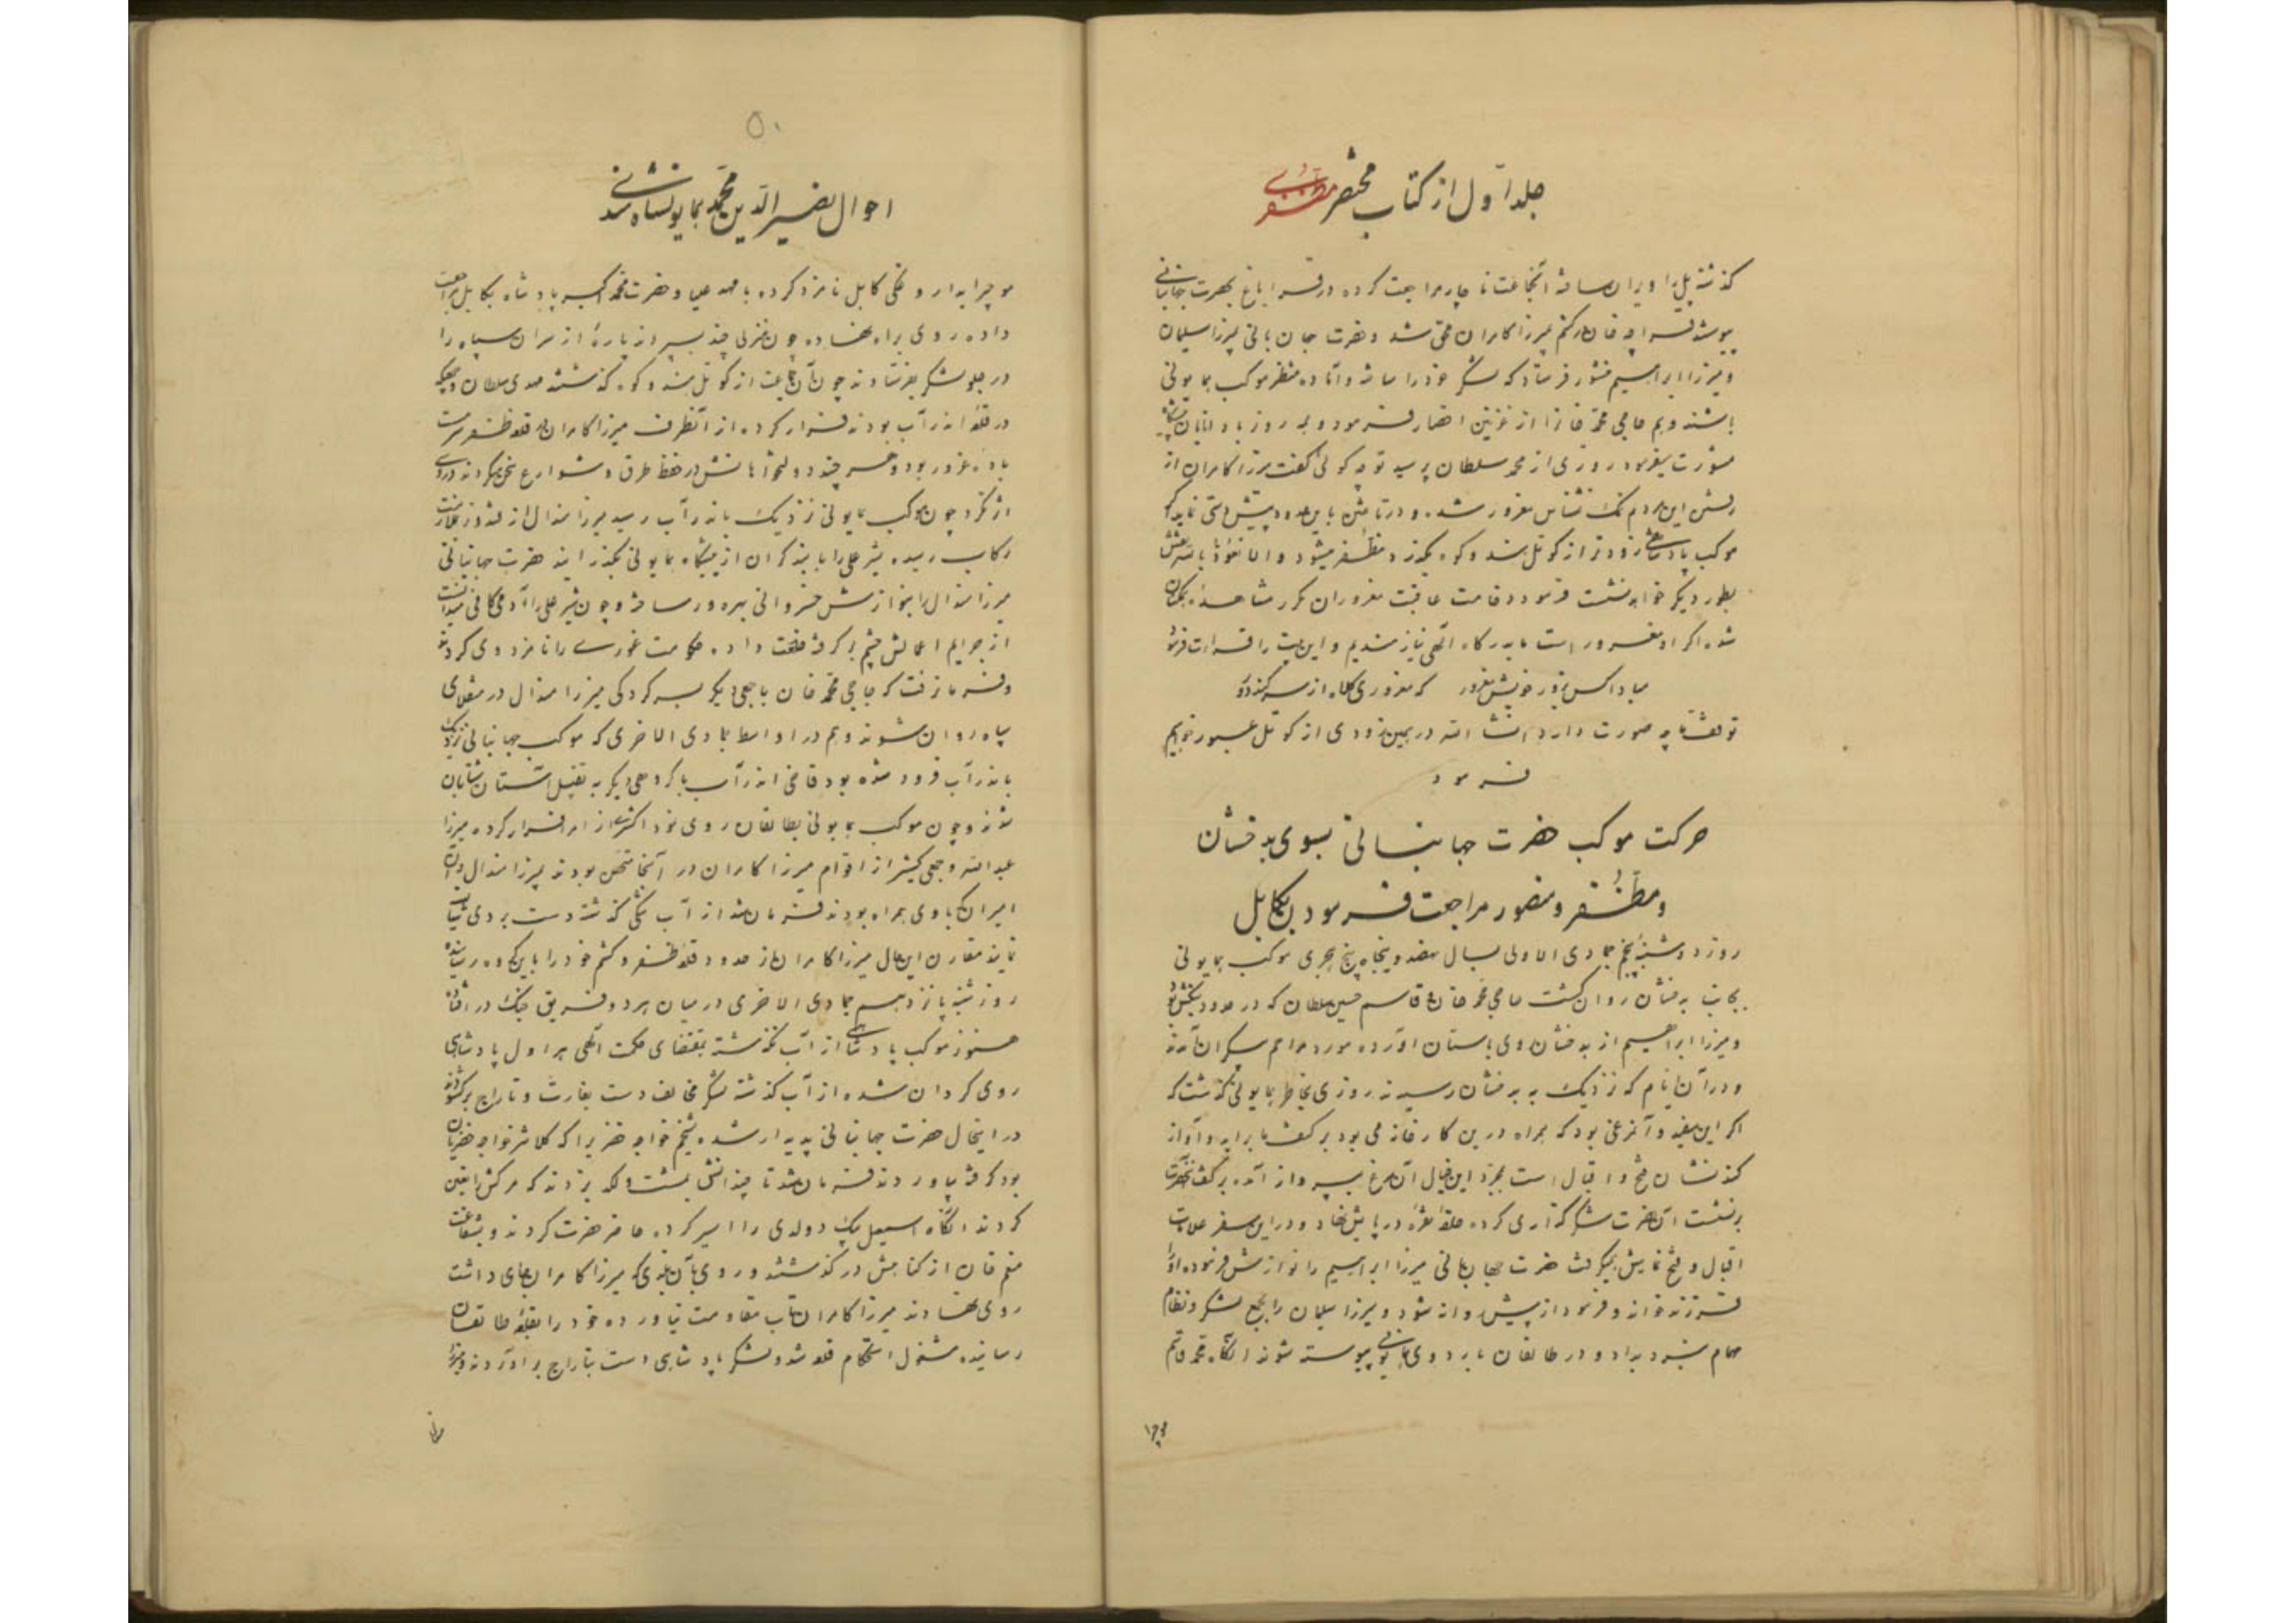 جلد اول از کتاب مختصر مظفری
گذشته پل را ویران ساخته آنجماعت ناچار مراجعت کرده در قراباغ بحضرت جهانبانی
پیوستند قراچه خان در کشم بمیرزا کامران ملحق شد و حضرت جهانبانی بمیرزا سلیمان
و میرزا ابراهیم منشور فرستاد که لشکر خود را ساخته و آماده منتظر موکب همایونی
باشند و هم حاجی محمد خانرا از غزنین احضار فرمود و همه روز با دانایان سپاه
مشورت میفرمود روزی از محمد سلطان پرسید تو چه گوئی گفت میرزا کامران از
رفتن این مردم نمک نشناس مغرور شده و در تاختن باین حدود پیشدستی نماید اگر
موکب پادشاهی زودتر از کوتل هندوکوه بگذرد مظفر میشود و الا نعوذ بالله نقش
بطور دیگر خواهد نشست فرمود وخامت عاقبت مغروران مکرر مشاهده همگنان
شده اگر او مغرور است ما بدرگاه الهی نیازمندیم و این بیت را قرائت فرمود
مباد اکس بزور خویش مغرور که مغروری کلاه از سر کند دور
توقف ما چه صورت دارد انشاء الله در همین زودی از کوتل عبور خواهیم
فرمود
حرکت موکب حضرت جهانبانی بسوی بدخشان
و مظفر و منصور مراجعت فرمودن بکابل
روز دوشنبه پنجم جمادی الاولی بسال نهصد و پنجاه و پنج هجری موکب همایونی
بجانب بدخشان روان گشت حاجی محمد خان و قاسم حسین سلطان که در حدود بنگش بود
و میرزا ابراهیم از بدخشان روی باستان آورده مورد مراحم بیکران آمدند
و در آن ایام که نزدیک به بدخشان رسیدند روزی بخاطر همایونی گذشت که
اگر این سفید و آنمرغی بود که همراه درین کارخانه می بود بر کتف ما برآید و آواز
کند نشان فتح و اقبال است بمجرد این خیال آن مرغ بپرواز آمده بر کتف آنحضرت
بنشست آن حضرت شکر گذاری کرده حلقه نقره در پایش نهاد و در این سفر علامات
اقبال و فتح نمایش همیگرفت حضرت جهانبانی میرزا ابراهیم را نوازش فرموده او را
فرزند خواند و فرمود از پیش روانه شود و میرزا سلیمان را بجمع لشکر و نظام
مهام نبرد بدارد و در طالقان باردوی همایونی پیوسته شوند آنگاه محمد قاسم
موچرا
۵۰
احوال نصیر الدین محمد همایون شاه ثانی
موچرا بدار و غگی کابل نامزد کرده با مهد علیا و حضرت محمد اکبر پادشاه بکابل مراجعت
داده روی براه نهاده چون منزلی چند سپردند پارهٔ از سران سپاه را
در جلو لشکر بفرستادند چون آن جماعت از کوتل هندوکوه گذشتند مهدی سلطان و جمعی که
در قلعه اندرآب بودند فرار کرده از آنطرف میرزا کامران در قلعه ظفر سرمست
باده غرور بود و هر چند دولتخواهانش در حفظ طرق و شوارع سخن میکردند در وی
اثر نکرد چون موکب همایونی نزدیک باندرآب رسید میرزا هندال از قندوز بملازمت
رکاب رسیده شیر علی را با بند گران از پیشگاه همایونی بگذرانید حضرت جهانبانی
میرزا هندال را بنوازش خسروانی بهره ور ساخته و چون شیر علی را آدمی کافی میدانست
از جرایم اعمالش چشم برگرفته خلعت داده حکومت غوری را نامزد وی کرد و
و فرمان رفت که حاجی محمد خان با جمعی دیگر بسرکردگی میرزا هندال در منقلای
سپاه روان شوند و هم در اواسط جمادی الاخری که موکب جهانبانی نزدیک
باندرآب فرود شده بود قاضی اندرآب با گروهی دیگر به تقبیل آستان شتابان
شدند و چون موکب همایونی بطالقان روی نمود اکثری از امرا فرار کرده میرزا
عبدالله و جمعی کثیر از اقوام میرزا کامران در آنجا متحصن بودند میرزا هندال و آن
امیران که با وی همراه بودند فرمان شد از آب بنگی گذشته دست بردی شایان
نمایند مقارن این حال میرزا کامران از حدود قلعه ظفر و کشم خود را باین گروه رسانیده
روز شنبه پانزدهم جمادی الاخری در میان هر دو فریق جنگ در افتاد
هنوز موکب پادشاهی از آب نگذشته بمقتضای حکمت الهی هراول پادشاهی
روی گردان شده از آب گذشته لشکر مخالف دست بغارت و تاراج برگشودند
در اینحال حضرت جهانبانی پدیدار شده شیخم خواجه خضریرا که کلانتر خواجه خضریان
بود گرفته بیاوردند فرمان شد تا چندانش بمشت و لگد بزدند که مرگش را یقین
کردند آنگاه اسمعیل بیک دولدی را اسیر کرده حاضر حضرت کردند و بشفاعت
منعم خان از گناهش درگذشتند و روی بآن بلندی که میرزا کامران جای داشت
روی نهادند میرزا کامران تاب مقاومت نیاورده خود را بقلعه طالقان
رسانیده مشغول استحکام قلعه شد و لشکر پادشاهی دست بتاراج برآوردند و میرزا